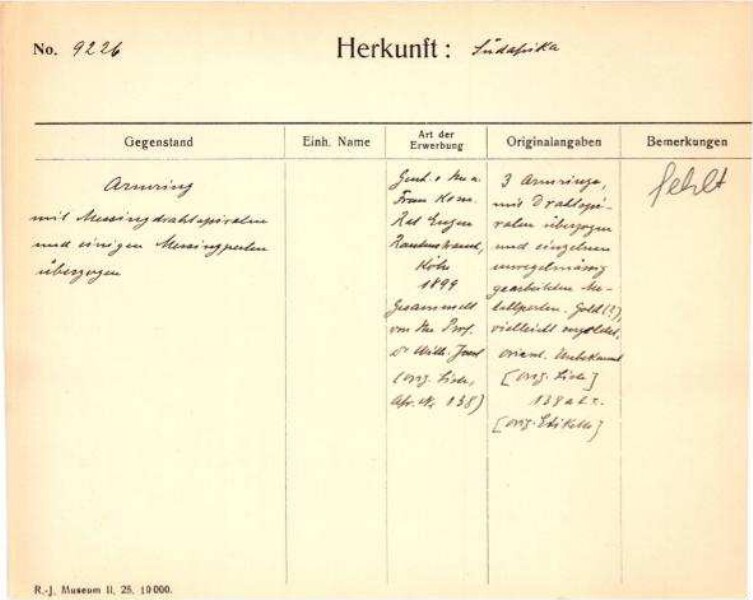 No. 9226
Herkunft: Südafrika
Gegenstand
Einh. Name
Art der Erwerbung
Originalangaben
Bemerkungen
Armring
mit Messingdrahtspiralen
und einigen Messingperlen
überzogen
Gesch. v. Hn u.
Frau Kom.
Rat Eugen
Rautenstrauch,
Köln
1899
Gesammelt
von Hn Prof.
Dr Wilh. Joest
(orig. Liste,
Afr. Nr. 138)
3 Armringe,
mit Drahtspi-
ralen überzogen
und einzelnen
unregelmässig
gearbeiteten Me-
tallperlen. Gold (?),
vielleicht vergoldet,
orient. Unbekannt
[orig. Liste]
138 a b c.
[orig. Etikette]
fehlt
R.-J. Museum II, 25. 10000.